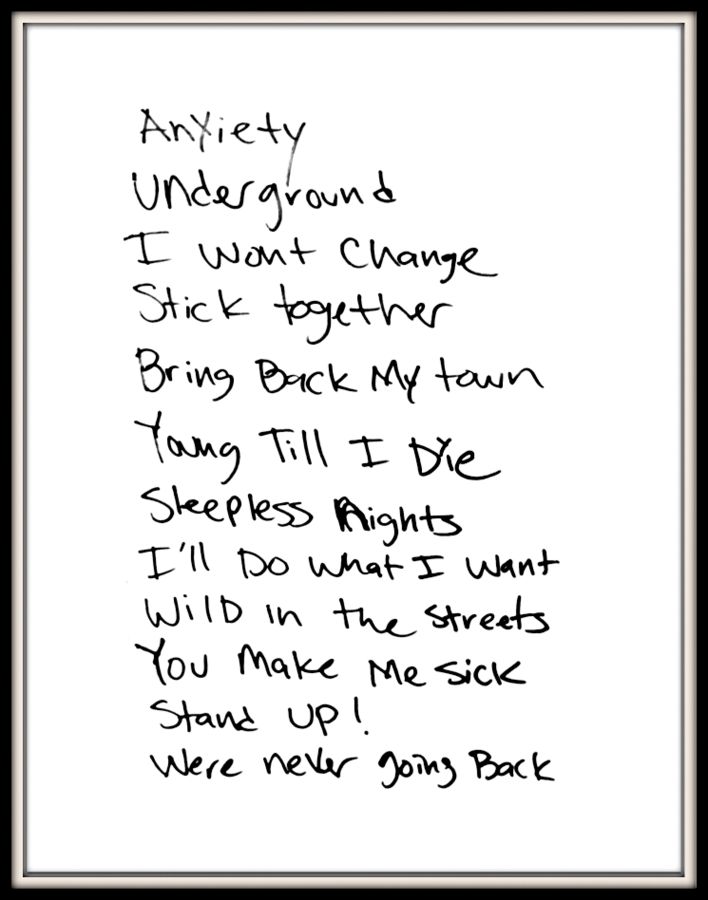 Anxiety
Underground
I Wont Change
Stick together
Bring Back My town
Young Till I Die
Sleepless Nights
I'll Do What I Want
Wild in the streets
You Make Me Sick
Stand UP!
Were never going Back